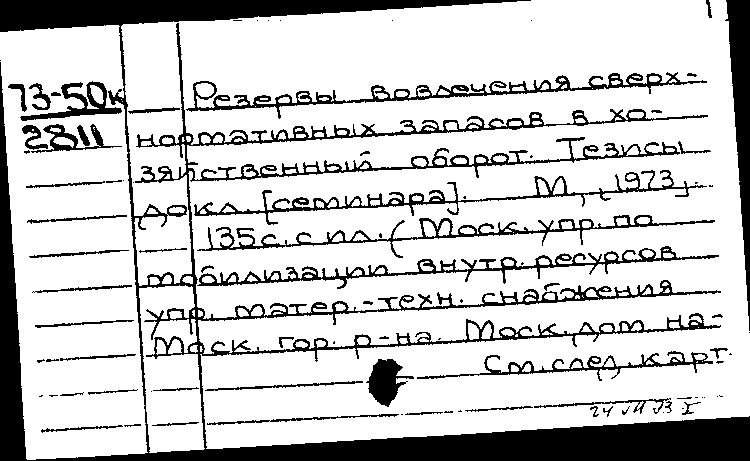 73-50к
2811
Резервы вовлечения сверх-
нормативных запасов в хо-
зяйственный оборот. Тезисы
докл. [семинара]. М., [1973].
135 с. с ил. (Моск. упр. по
мобилизации внутр. ресурсов
упр. матер.-техн. снабжения
Моск. гор. р-на. Моск. дом на-
См. след. карт.